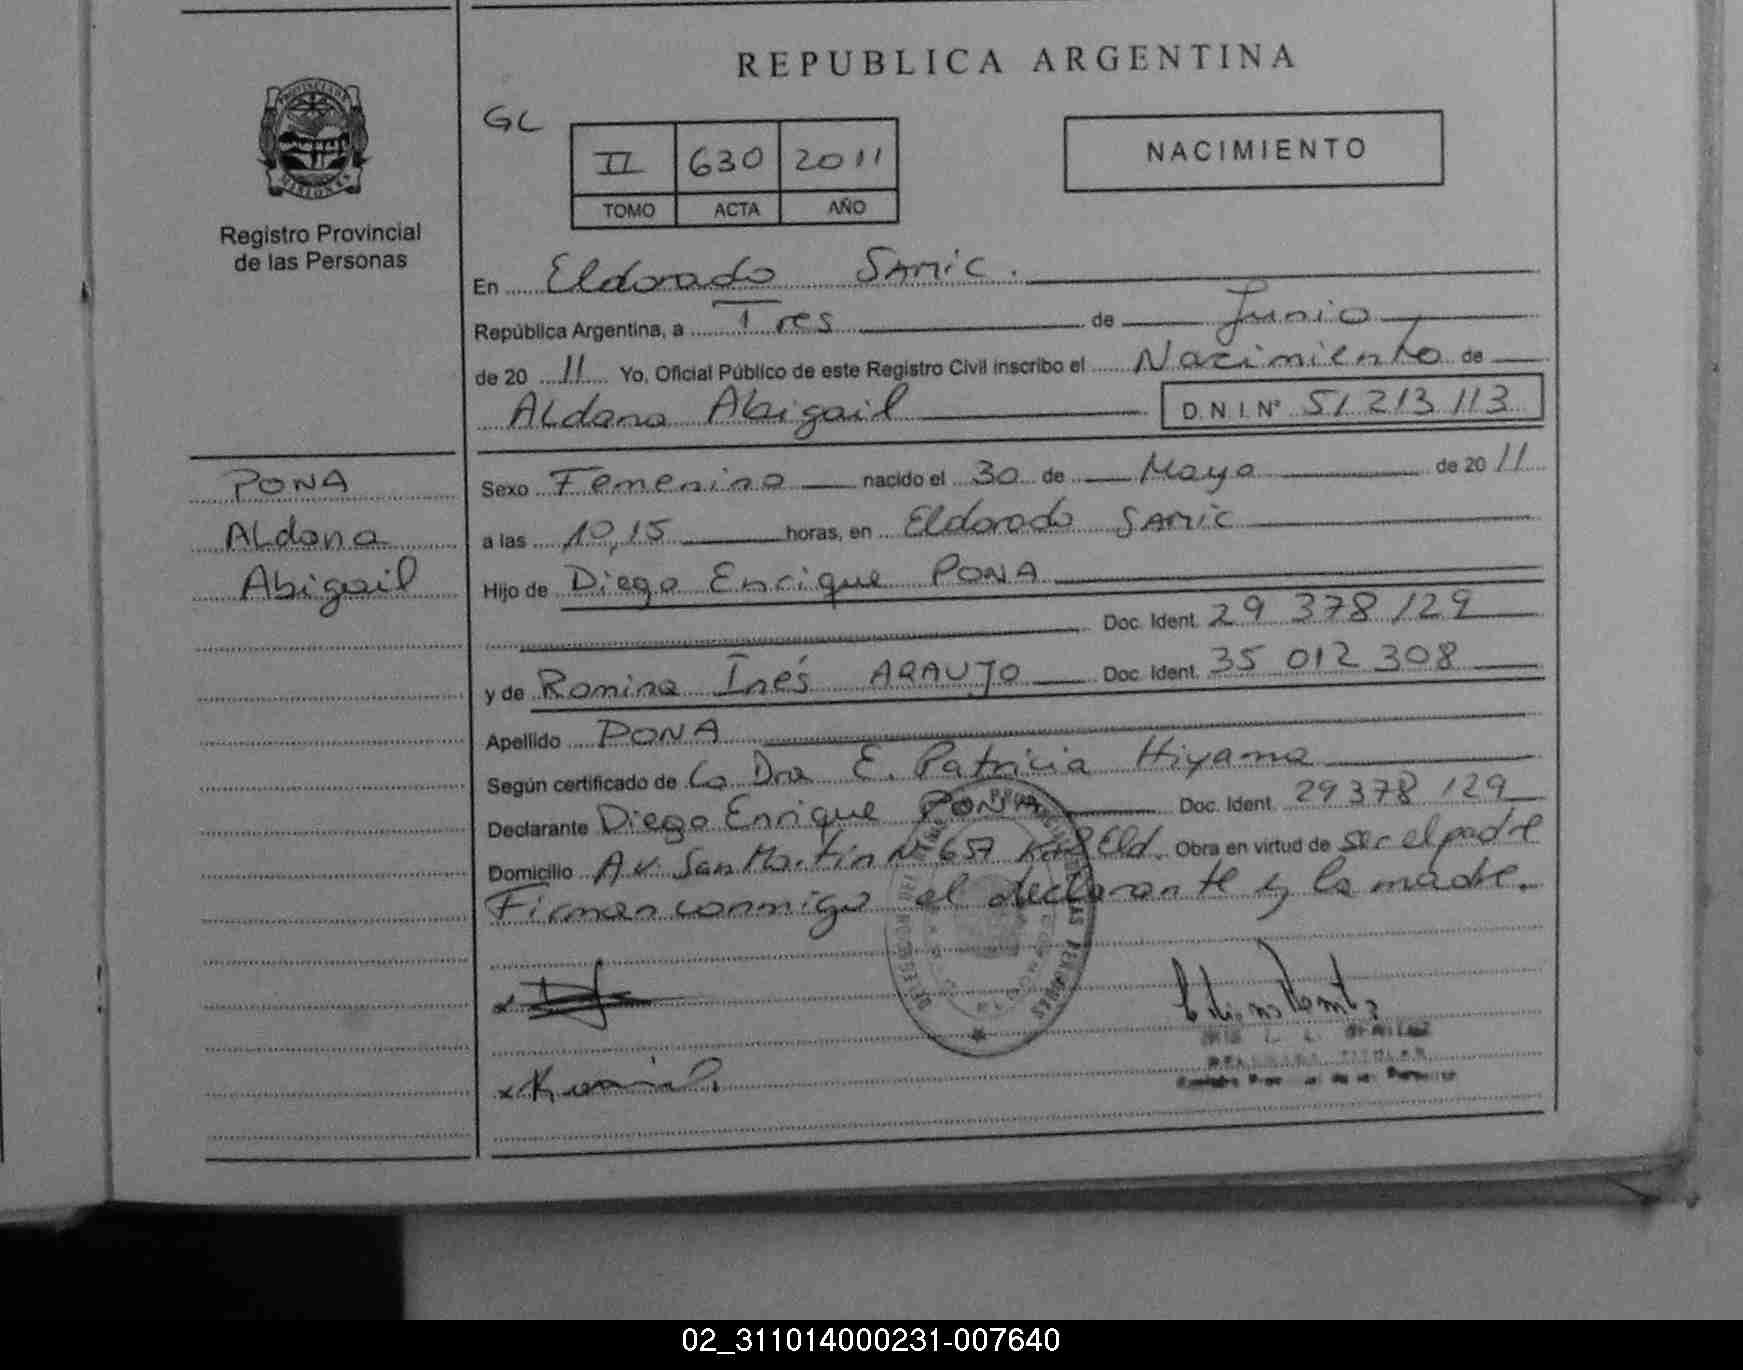 REPUBLICA ARGENTINA
GL
II 630 2011
TOMO ACTA AÑO
NACIMIENTO
PROVINCIA DE MISIONES
Registro Provincial
de las Personas
En Eldorado SAMIC.
República Argentina, a Tres de Junio
de 20 11 Yo, Oficial Público de este Registro Civil inscribo el Nacimiento de
Aldana Abigail D.N.I. Nº 51 213 113
PONA
Aldana
Abigail
Sexo Femenino nacido el 30 de Mayo de 20 11
a las 10,15 horas, en Eldorado SAMIC
Hijo de Diego Enrique PONA
Doc. Ident. 29 378 129
y de Romina Inés ARAUJO Doc. Ident. 35 012 308
Apellido PONA
Según certificado de la Dra E. Patricia Hiyama
Declarante Diego Enrique PONA Doc. Ident. 29 378 129
Domicilio Av. San Martín Nº 657 Eld. Obra en virtud de ser el padre
Firman conmigo el declarante y la madre.
x
x
TITULAR
02_311014000231-007640